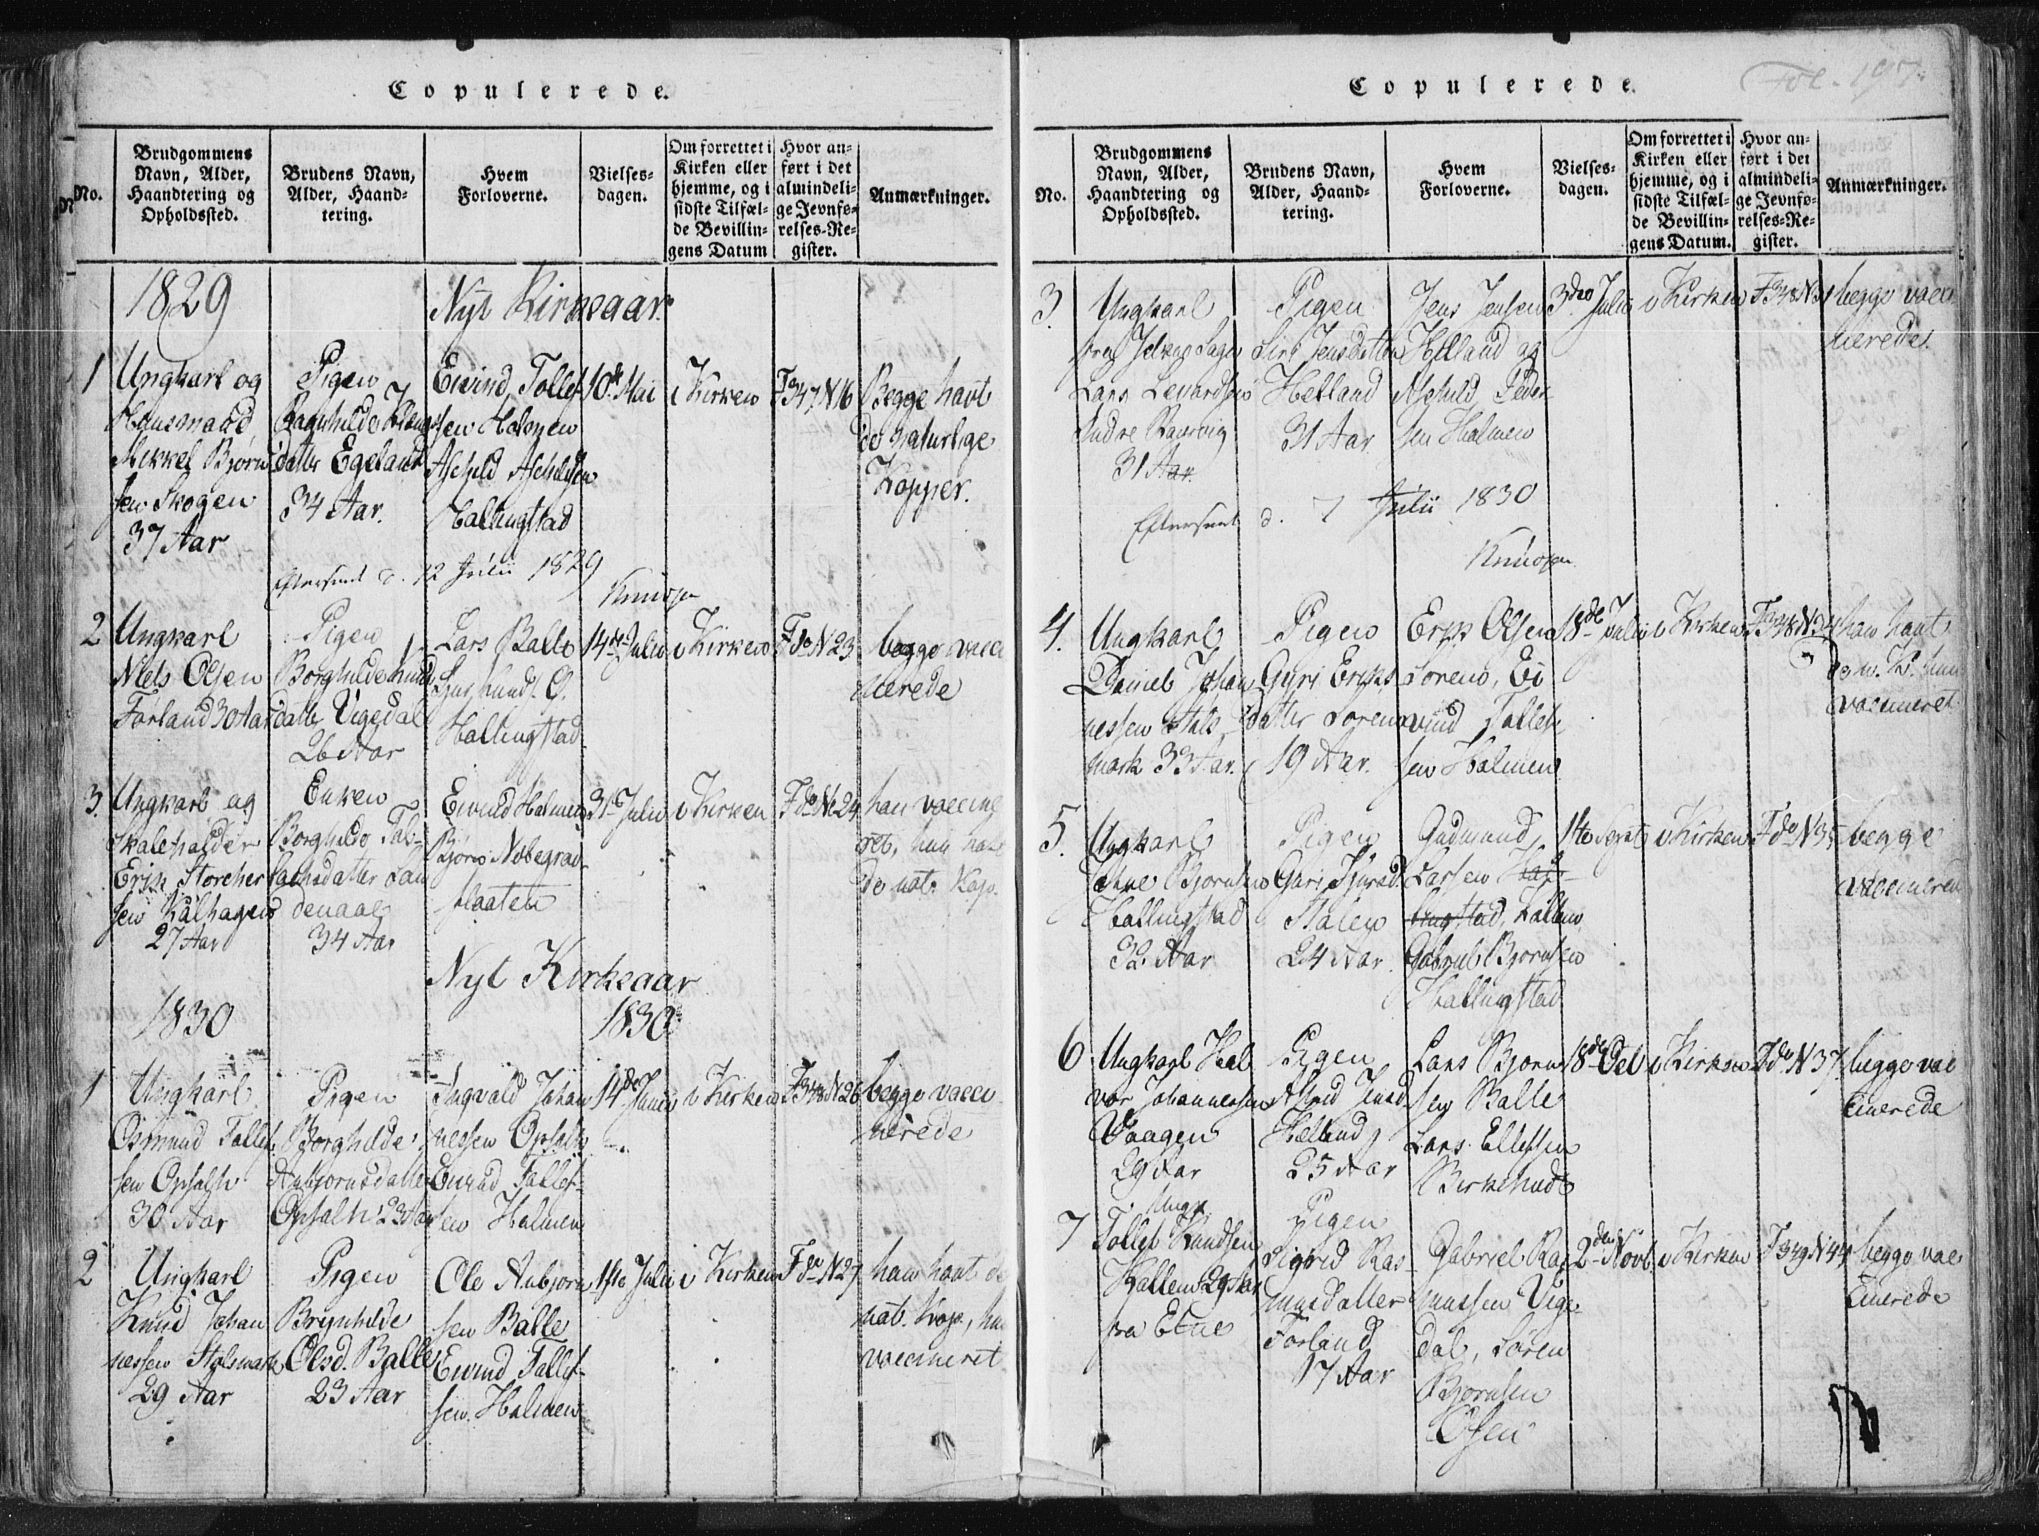 Copulerede.
No.
Brudgommens
Navn, Alder,
Haandtering og
Opholdssted.
Brudens Navn,
Alder, Haand-
tering.
Hvem
Forloverne.
Vielses-
dagen.
Om forrettet i
Kirken eller
hjemme, og i
sidste Tilfæl-
de Bevillin-
gens Datum
Hvor an-
ført i det
almindeli-
ge Jevnfø-
relses-Re-
gister.
Anmærkninger.
1829
Nyt Kirkeaar
1
Ungkarl og
Huusmand
Mikkel Bjørn
sen Skogen
37 Aar
Pigen
Ragnhilde
datter Egeland
34 Aar.
Eivind Tollef
sen Holmen
Aschild Aschildsen
Hallingstad
10de Mai
i Kirken
F 347, N 16
Begge havt
de naturlige
Kopper.
Efterseet d. 12 Julii 1829
Knudsen
2
Ungkarl
Niels Olsen
Førland 30 Aar
Pigen
Borghilde
datter Vigedal
26 Aar
Lars Balle
Hallingstad
14de Julii
i Kirken
F do N 23
begge vacci
nerede
3.
Ungkarl og
Skoleholder
Erik Storcker
sen Kålhagen
27 Aar
Enken
Borghilde Tol-
lachsdatter Lan
denaae
34 Aar
Eivind Holmen
Bjørn Nobegrav
Maaten
31te Julii
i Kirken
F do N 24
han vaccine
ret, hun hav
de nat. Kop.
1830
Nyt Kirkeaar
1830
1
Ungkarl
Osmund Tollef
sen Opsalh
30 Aar
Pigen
Borghilde
Anbjørnsdatter
Opsalh 23 Aar
Ingvald Johan
nessen Opsalh
Eivind Tollef-
sen Holmen
14de Junii
i Kirken
F 348 N 26
begge vacci
nerede
2
Ungkarl
Knud Johan
nessen Stølsmark
29 Aar
Pigen
Brynhilde
Olsd. Balle
23 Aar
Ole Anbjørn
sen Balle
Eivind Tollef-
sen Holmen
1ste Julii
i Kirken
F do N 27
han havt de
nat. Kop., hun
vaccineret
Copulerede.
Fol. 197.
No.
Brudgommens
Navn, Alder,
Haandtering og
Opholdssted.
Brudens Navn,
Alder, Haand-
tering.
Hvem
Forloverne.
Vielses-
dagen.
Om forrettet i
Kirken eller
hjemme, og i
sidste Tilfæl-
de Bevillin-
gens Datum.
Hvor an-
ført i det
almindeli-
ge Jevnfø-
relses-Re-
gister.
Anmærkninger.
3.
Ungkarl
fra Jelsøe Sogn
Lars
Indre
31 Aar.
Pigen
Siri Jensdatter
Hetland
31 Aar
Jens Jensen
Hetland og
Aschild Peder
sen Holmen
3die Julii
i Kirken
F 348 N 31
begge vacci
nerede.
Efterseet d. 7 Julii 1830
Knudsen
4.
Ungkarl
Daniel Johan
nessen Støls-
mark 33 Aar.
Pigen
Guri Eriks
datter Soren
19 Aar.
Erik Olsen
Soren, Ei
vind Tollef
sen Holmen
18de Julii
i Kirken
F 348 N 34
han havt
de n. K. hun
vaccineret
5.
Ungkarl
Bjørnsen
Hallingstad
32 Aar
Pigen
Guri Sjursd.
Stølen
24 Aar
Gudmund
Larsen Hal-
lingstad,
Gabriel Bjørnsen
Hallingstad
1ste
i Kirken
F do N 35
begge
vaccinered
6
Ungkarl Hal
vor Johannessen
Vaagen
29 Aar
Pigen
Astrid Jensd
Hetland
25 Aar
Lars Bjørn
sen Balle
Lars Ellefsen
Birkelund
18de Oct
i Kirken
F do N 37
begge vac
cinerede
7
Ungk.
Tollef Knudsen
29 Aar
fra Etne
Pigen
Sigrid Ras
musdatter
Førland
17 Aar
Gabriel Ras
mussen Vige
dal, Søren
Bjørnsen
Osen
2den Novb.
i Kirken
F 349 N 44
begge vac
cinerede